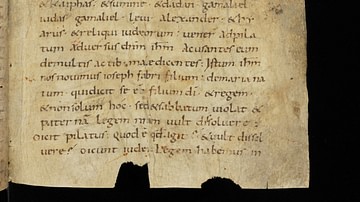 & caiphas, & sumne, & dadan gamaliel
iudas gamaliel. leui. alexander. &
arus. & reliqui iudeorum. uener ad pila
tum aduersus dnm ihm accusantes eum
de multis actib; male dicentes. Istum ihm
nos nouimus ioseph fabri filium. de maria na
tum. qui dicit se eē filium di. & regem.
& non solum hoc. sed & sabbatum uiolat. &
pater nā legem nram uult dissoluere.
Dicit pilatus. quod ē qd agit. & uult dissol
uere. Dicunt iudei. Legem habemus in